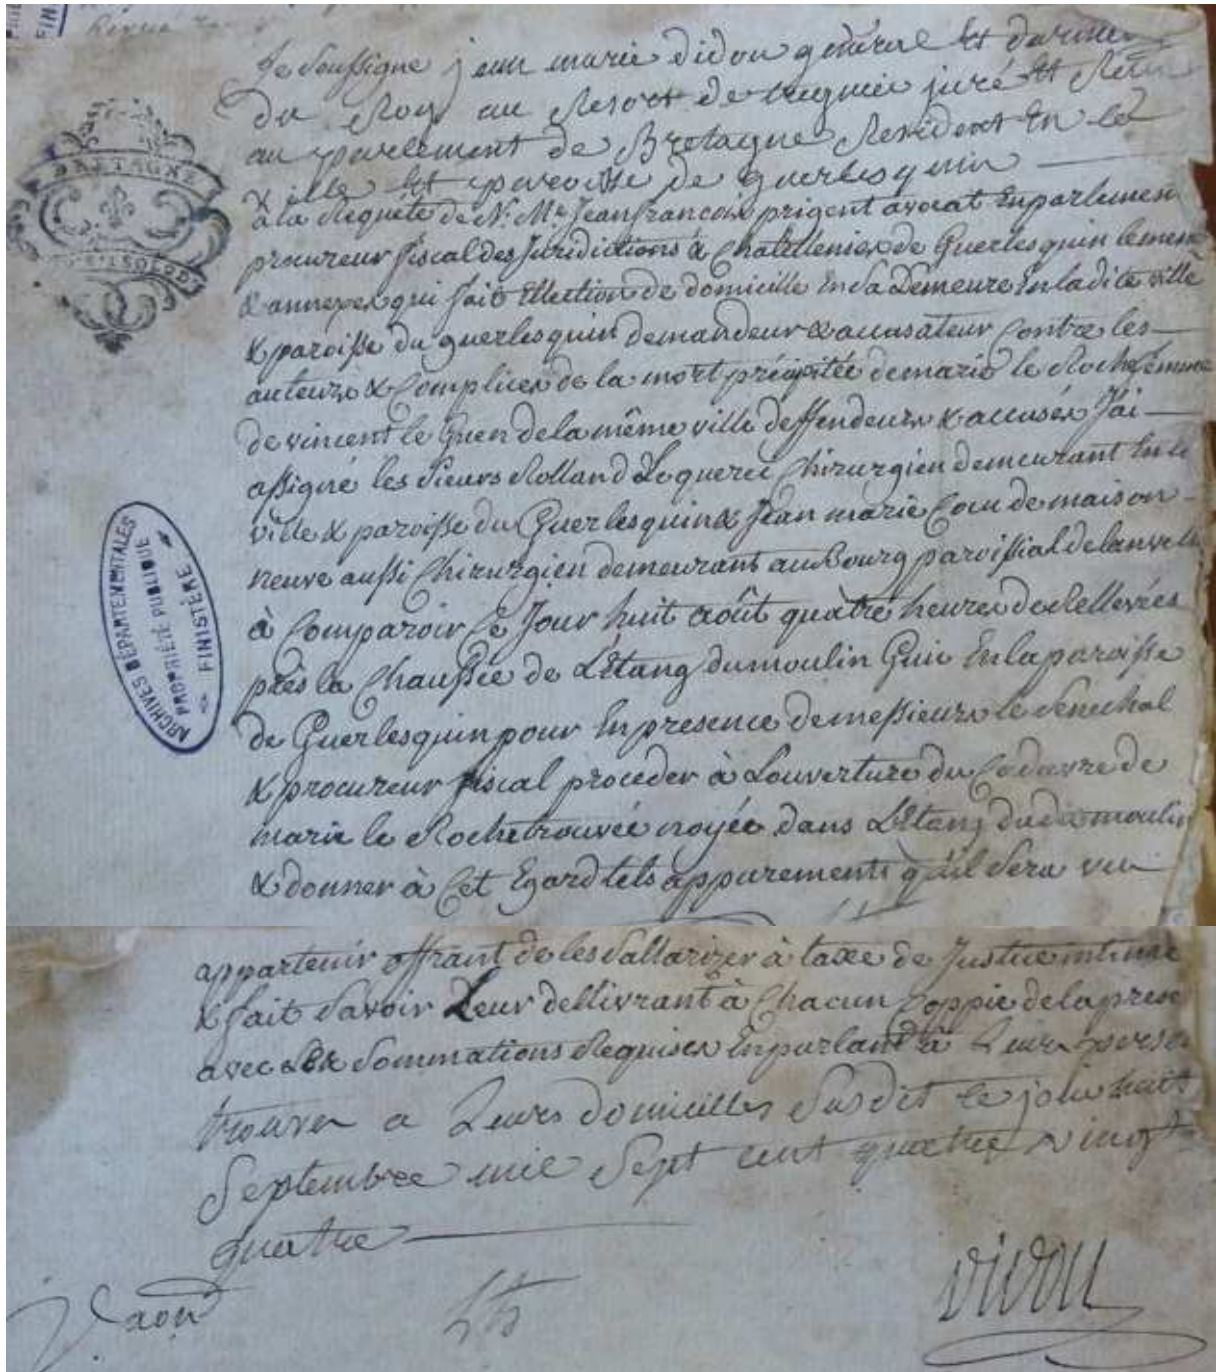 FIN
BRETAGNE
ARCHIVES DÉPARTEMENTALES
PROPRIÉTÉ PUBLIQUE
FINISTÈRE
Je Soussigné jean marie didou général et darmes
du Roy au Resort de treguier juré et
au parlement de Bretagne Resident En la
ville et paroisse de guerlesquin
à la Requête de N. Me. Jean francois prigent avocat En parlement
procureur fiscal des Juridictions & Chatellenies de Guerlesquin
& annexes qui fait Ellection de domicille En Sa Demeure En ladite ville
& paroisse du guerlesquin demandeur & accusateur Contre les
auteurs & Complices de la mort précipitée de marie le Roche femme
de vincent le Guen de la même ville deffendeurs & accusés J'ai
assigné les Sieurs Rolland Chirurgien demeurant En la
ville & paroisse du Guerlesquin & Jean marie de maison
neuve aussi Chirurgien demeurant au Bourg paroissial de
à Comparoir Ce Jour huit août quatre heures de Rellevées
près la Chaussée de L'Etang du moulin Guic En la paroisse
de Guerlesquin pour En presence de messieurs le Senechal
& procureur fiscal proceder à Louverture du Cadavre de
marie le Roche trouvée noyée dans L'Etang dudit moulin
& donner à Cet Egard tels appurements qu'il Sera vu
appartenir offrant de les Sallarizer à taxe de Justice intimé
& fait Savoir Leur dellivrant à Chacun Coppie de la
avec les Sommations Requises En parlant à Leurs
trouver a Leurs domicilles Susdit le huit
Septembre mil Sept cent quatre vingt
quatre
didou